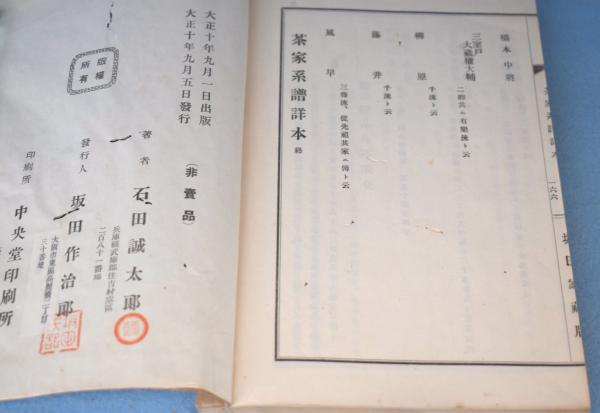 橋本中将
三室戸
大蔵権大輔
二齣共ニ有樂流ト云
柳原
千流ト云
藤井
千流ト云
風早
三齋流、從先祖其家ニ傳ト云
茶家系譜詳本 終
一六六
大正十年九月一日出版
大正十年九月五日發行
(非賣品)
版權所有
著者
石田誠太郎
兵庫縣武庫郡住吉村
二百八十一番地
發行人
坂田作治郎
三十番地
印刷所
中央堂印刷所